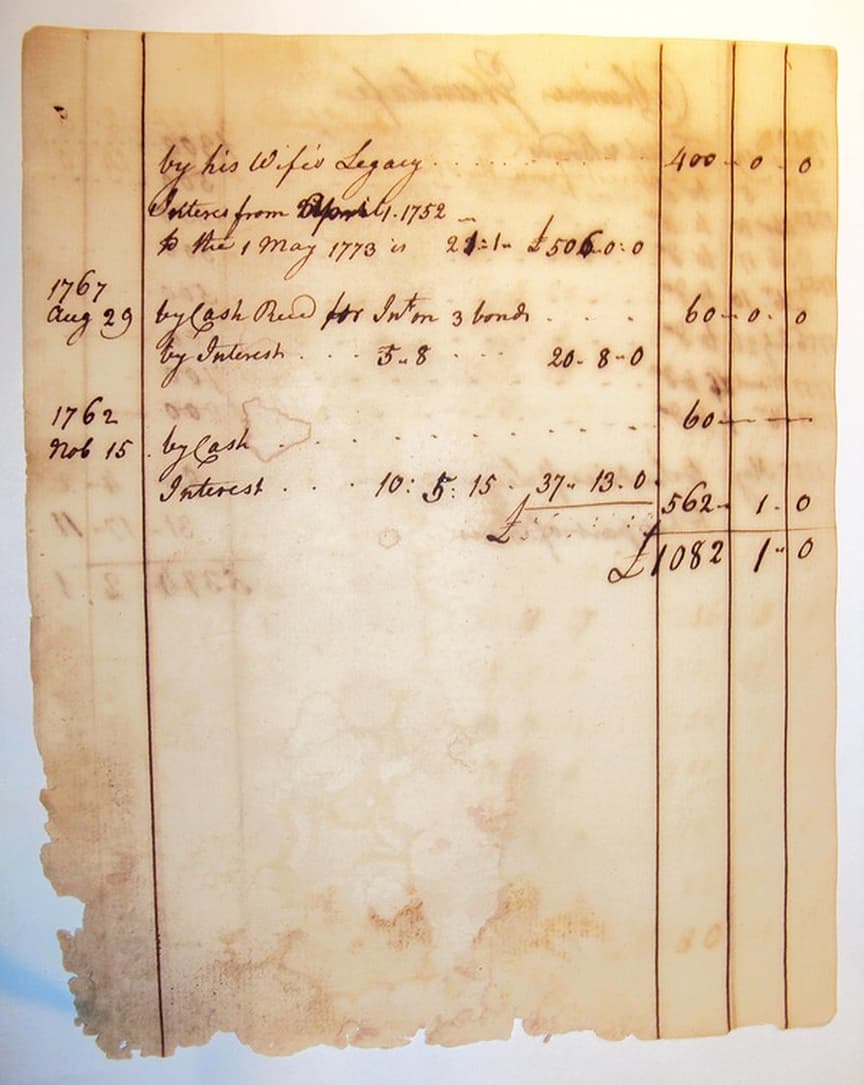 by his Wife's Legacy . . . . . . . . . 400 - 0 - 0
Interes from April 1. 1752 –
to the 1 May 1773 is 21:1- £506.0:0
1767
Aug 29 by Cash Recd for Int on 3 bonds . . . . 60 - 0 - 0
by Interest . . . 5 - 8 . . . 20 - 8 - 0
1762
Nob 15 by Cash . . . . . . . . . 60 - — —
Interest . . . 10: 5: 15 - 37 - 13 - 0
£ . . . . . 562 - 1 - 0
£1082 1 - 0